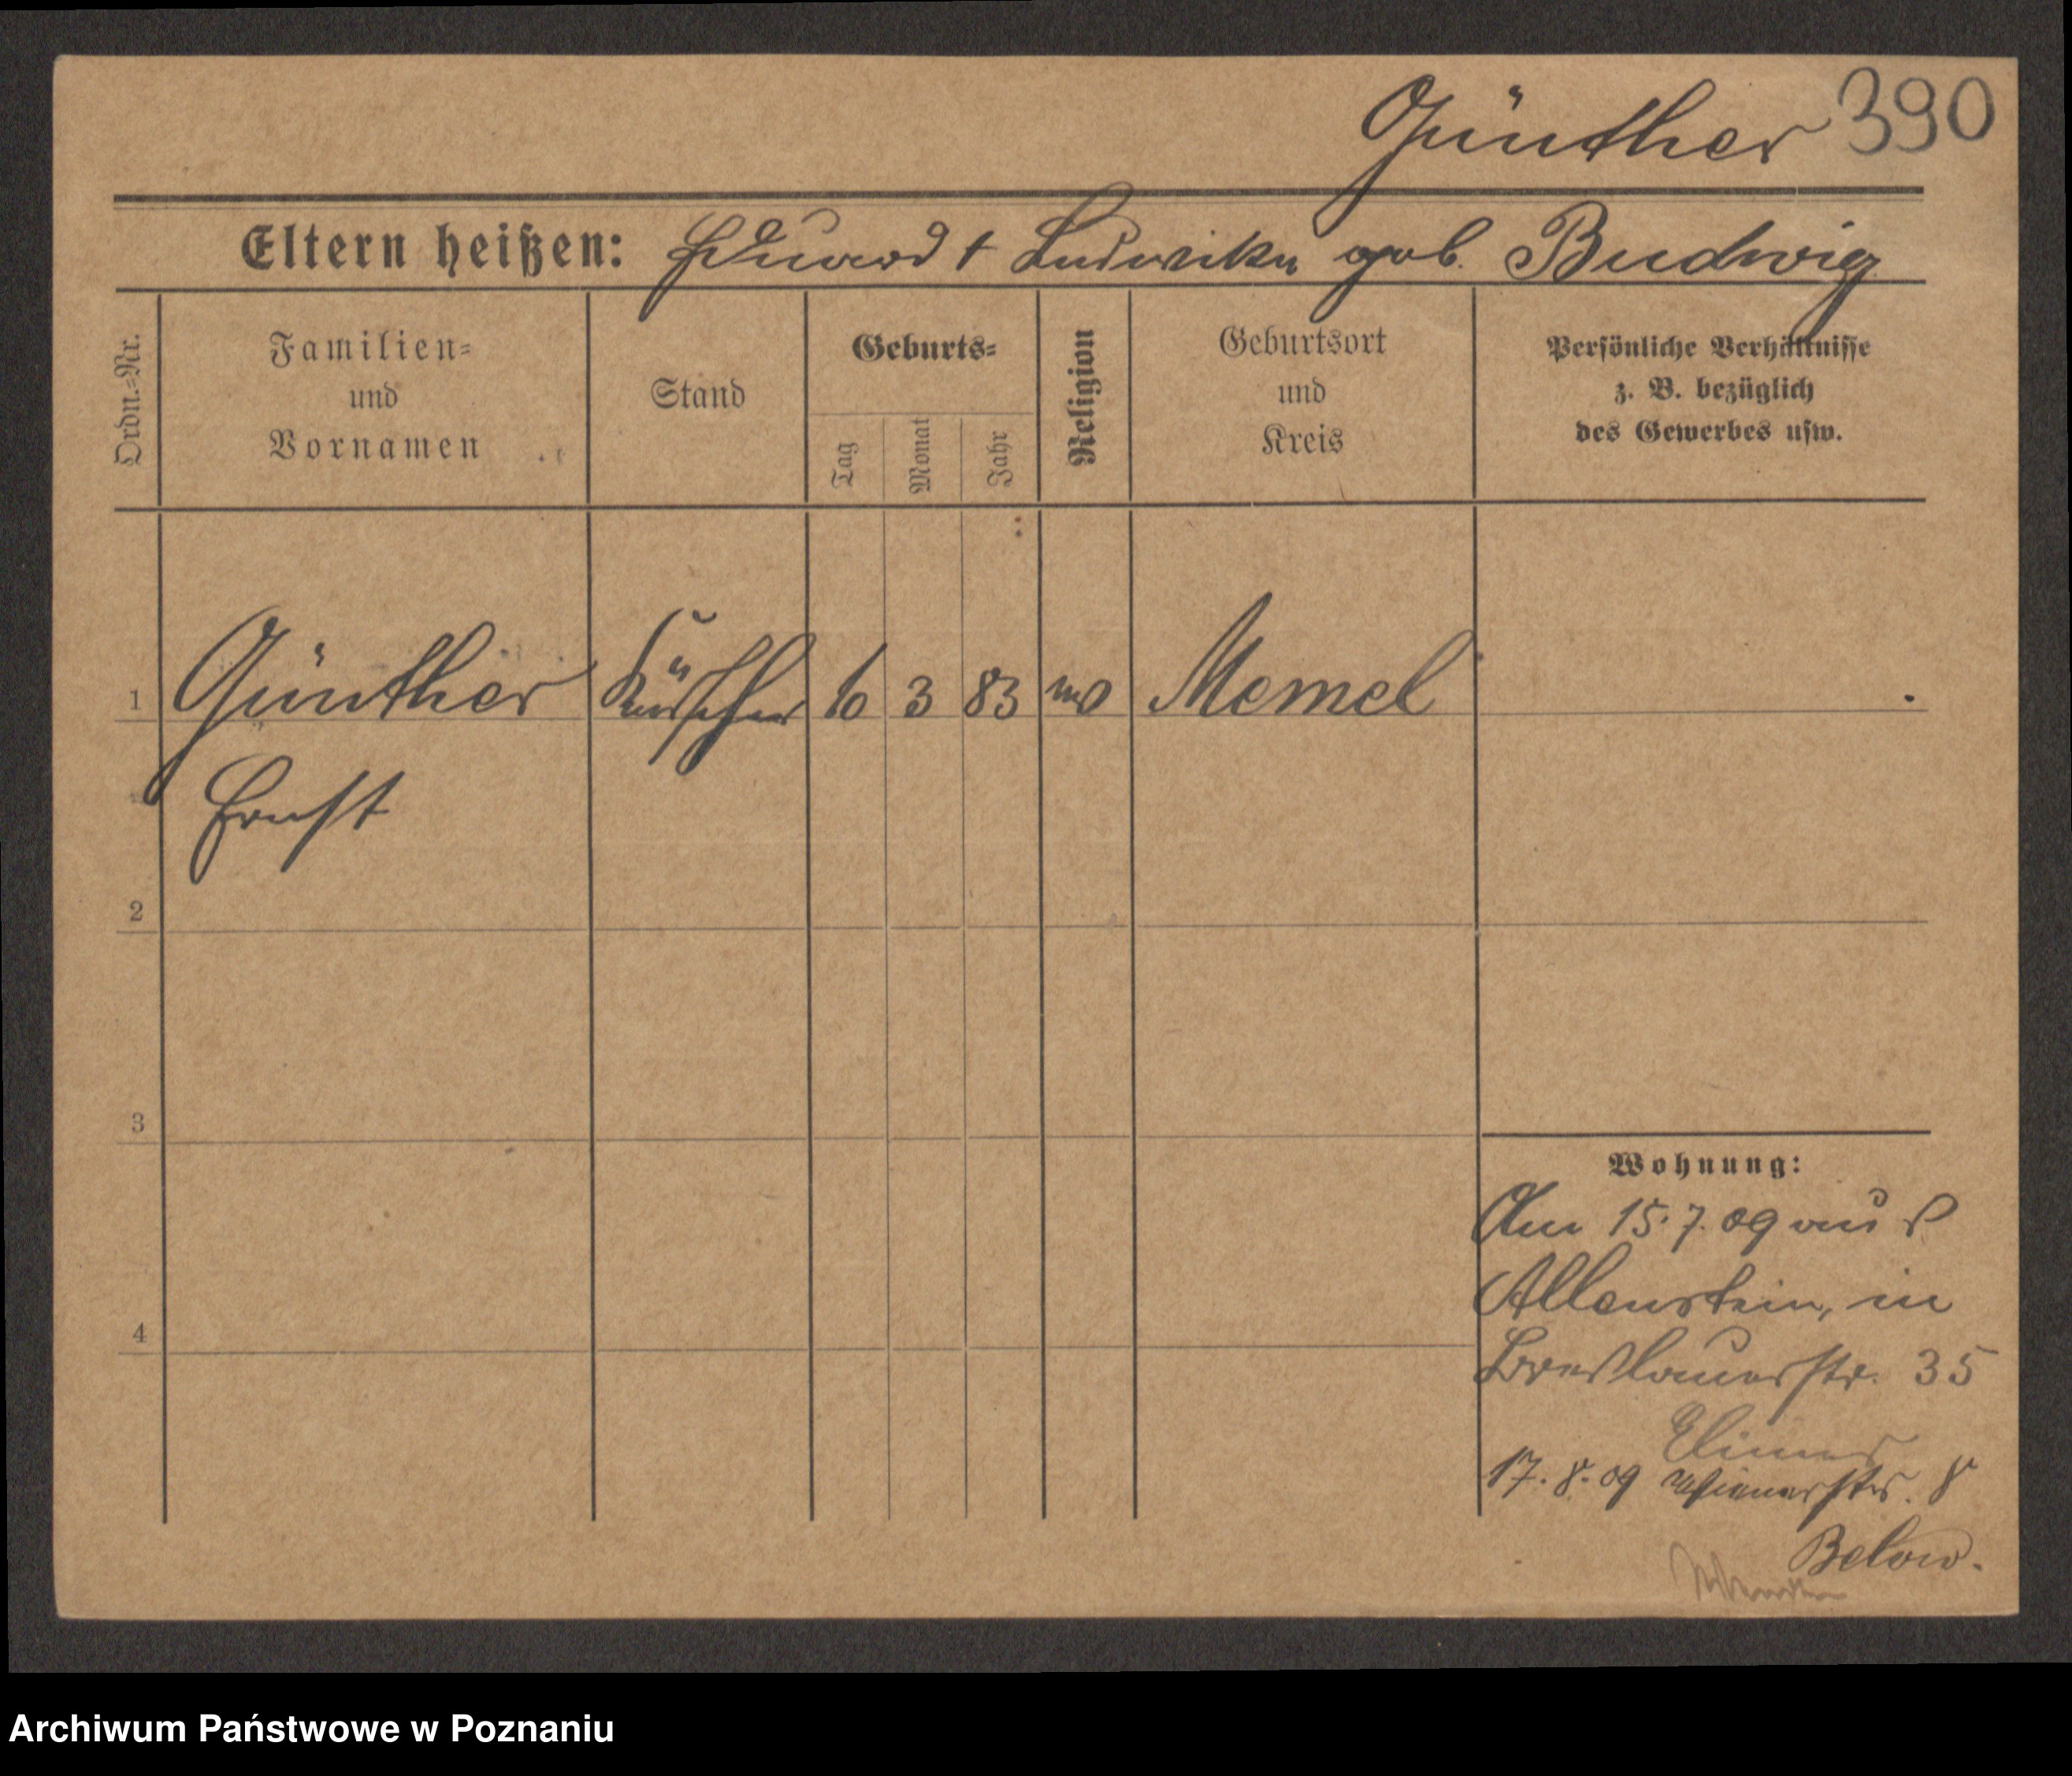 Günther 390
Eltern heißen: Eduard + Ludwika geb. Budwig
Ordn.-Nr.
Familien-
und
Vornamen
Stand
Geburts-
Tag
Monat
Jahr
Religion
Geburtsort
und
Kreis
Persönliche Verhältnisse
z. B. bezüglich
des Gewerbes usw.
1 Günther Kürschner 10 3 83 Memel
Ernst
2
3
4
Wohnung:
Am 15.7.09 aus
Allenstein, in
Breslauerstr. 35
17.8.09 Wienerstr. 8
Below.
Archiwum Państwowe w Poznaniu